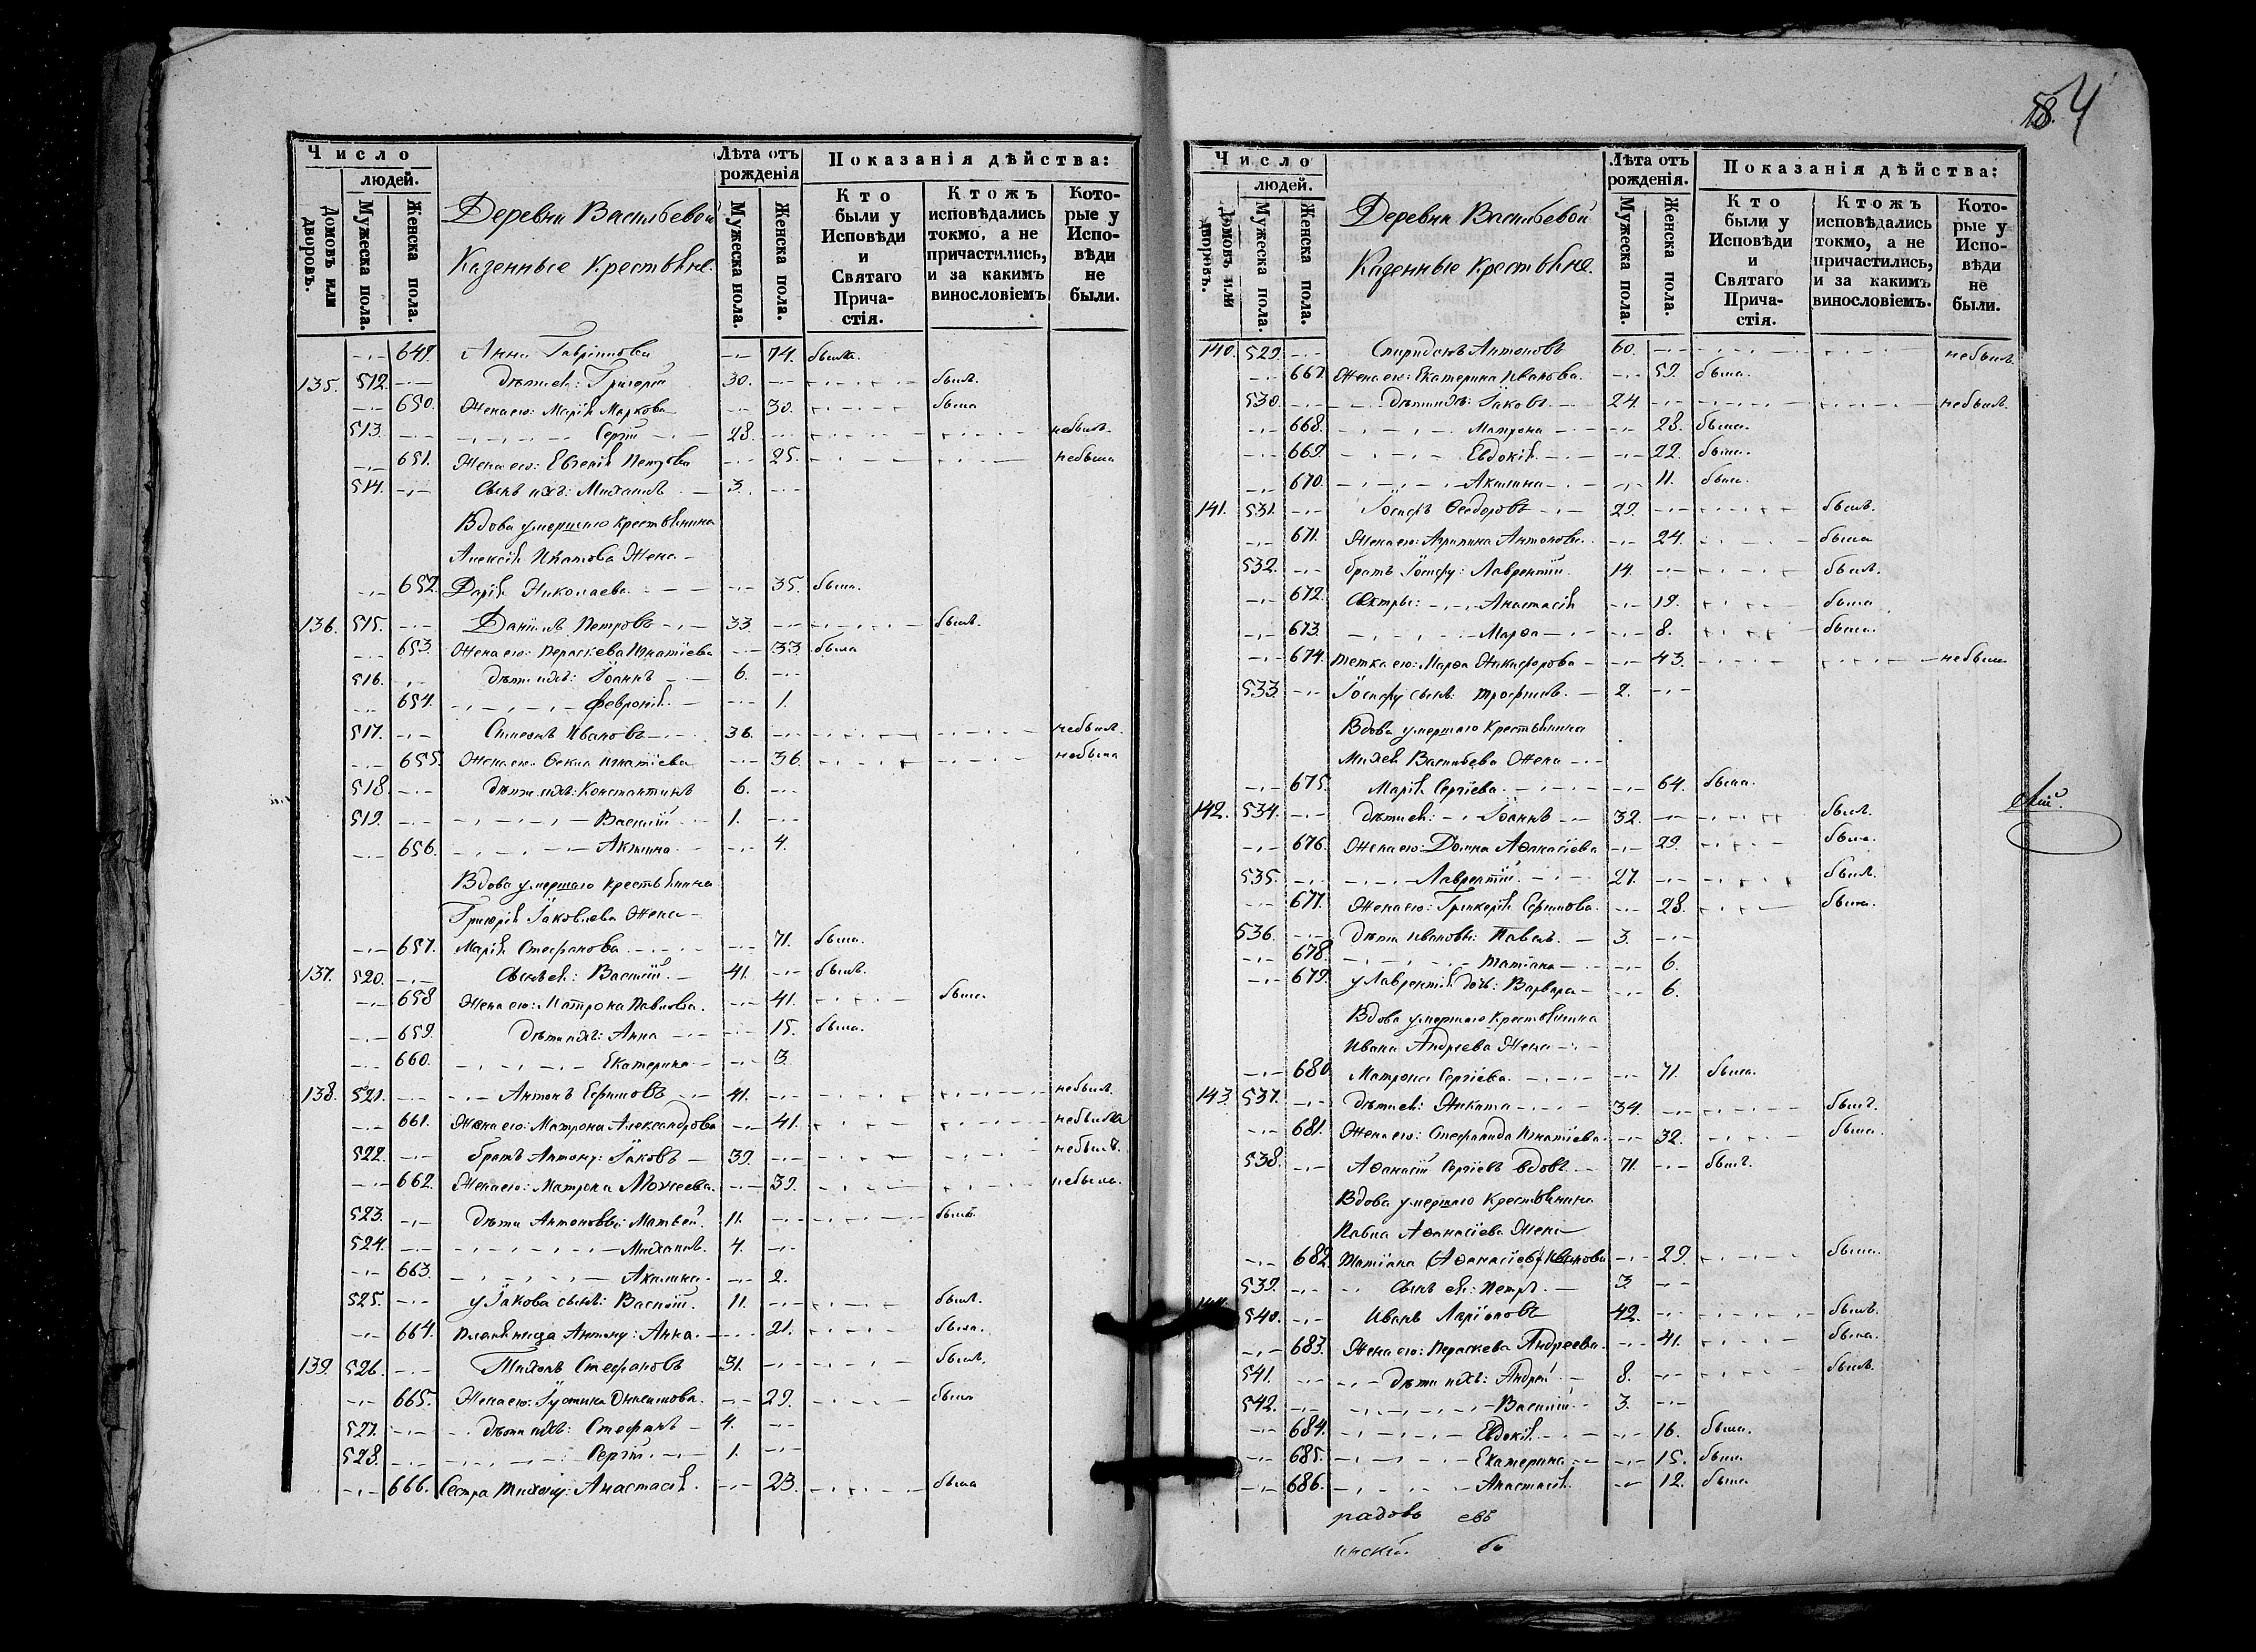 58. 4
Число
людей.
Домовъ или дворовъ.
Мужеска пола.
Женска пола.
Деревни Васильевой
Казенные крестьяне.
Лѣта отъ рожденія
Мужеска пола.
Женска пола.
Показанія дѣйства:
Кто были у Исповѣди и Святаго Прича-стія.
Ктожъ исповѣдались токмо, а не причастились, и за какимъ винословіемъ
Кото-рые у Испо-вѣди не были.
649. Анна Гаврилова 74. была.
135. 512. дѣти ея: Григорій 30. былъ.
650. Жена его: Марія Маркова 30. была
513. Сергій 28. небылъ.
651. Жена его: Евгенія Петрова 25. небыла
514. Сынъ ихъ: Михаилъ 3.
Вдова умершаго крестьянина
Алексія Игнатова Жена
652. Дарія Николаева 35. была.
136. 515. Даніилъ Петровъ 33. былъ.
653. Жена его: Параскева Игнатіева 33. была
516. дѣти ихъ: Іоаннъ 6.
654. Февронія 1.
517. Симеонъ Ивановъ 36. небылъ.
655. Жена его: Фекла Игнатіева 36. небыла
518. дѣти ихъ: Константинъ 6.
519. Василій 1.
656. Акилина 4.
Вдова умершаго крестьянина
Григорія Іаковлева Жена
657. Марія Стефанова 71. была.
137. 520. Сынъ ея: Василій 41. былъ.
658 Жена его: Матрона Павлова. 41. была.
659. дѣти ихъ: Анна 15. была.
660. Екатерина 3.
138. 521. Антонъ Ефимовъ 41. небылъ.
661. Жена его: Матрона Александрова 41. небыла
522. братъ Антону: Іаковъ 39. небылъ.
662. Жена его: Матрона Моисеева. 39. небыла.
523. дѣти Антоновы: Матвей. 11. былъ.
524. Михаилъ. 4.
663. Акилина 2.
525. у Іакова сынъ: Василій. 11. былъ.
664. Племяница Антону: Анна. 21. была.
139. 526. Тихонъ Стефановъ 31. былъ.
665. Жена его: Іустина Онисимова. 29. была
527. дѣти ихъ: Стефанъ 4.
528. Сергій. 1.
666. Сестра Тихону: Анастасія. 23. была
Число
людей.
Домовъ или дворовъ.
Мужеска пола.
Женска пола.
Деревни Васильевой
Казенные крестьяне.
Лѣта отъ рожденія.
Мужеска пола.
Женска пола.
Показанія дѣйства:
Кто были у Исповѣди и Святаго Прича-стія.
Ктожъ исповѣдались токмо, а не причастились, и за какимъ винословіемъ.
Кото-рые у Испо-вѣди не были.
140. 529. Спиридонъ Антоновъ 60. небылъ.
667. Жена его: Екатерина Иванова. 59. была.
530. дѣти ихъ: Іаковъ 24. небылъ.
668. Матрона 28. была.
669. Евдокія 22. была.
670. Акилина 11. была.
141. 531. Іосифъ Феодоровъ 29. былъ.
671. Жена его: Агрипина Антонова. 24. была
532. братъ Іосифу: Лаврентій. 14. былъ.
672. Сестры: Анастасія 19. была
673. Марфа 8. была.
674. тетка его: Марфа Никифорова 43. небыла
533. Іосифу сынъ: Трофимъ. 2.
Вдова умершаго крестьянина
Михея Васильева Жена
675. Марія Сергіева. 64. была.
142. 534. дѣти ея: Іоаннъ 32. былъ.
676. Жена его: Домна Афанасіева 29. была.
535. Лаврентій. 27. былъ.
677. Жена его: Гликерія Ефимова. 28. была.
536. дѣти Ивановы: Павелъ. 3.
678. Татіана 6.
679. у Лаврентія дочь: Варвара 6.
Вдова умершаго крестьянина
Ивана Андреева Жена
680 Матрона Сергіева 71. была.
143. 537. дѣти ея: Никита 34. былъ.
681. Жена его: Стефанида Игнатіева. 32. была.
538. Афанасій Сергіевъ вдовъ 71. былъ.
Вдова умершаго крестьянина
Павла Афанасіева Жена
682. Татіана Афанасіева Иванова 29. была.
539. Сынъ ея: Петръ. 3.
540. Иванъ Ларіоновъ 42. былъ.
683. Жена его: Параскева Андреева. 41. была.
541. дѣти ихъ: Андрей 8. былъ.
542. Василій 3.
684. Евдокія 16. была.
685. Екатерина 15. была
686. Анастасія. 12. была
радовъ евъ
инскій.